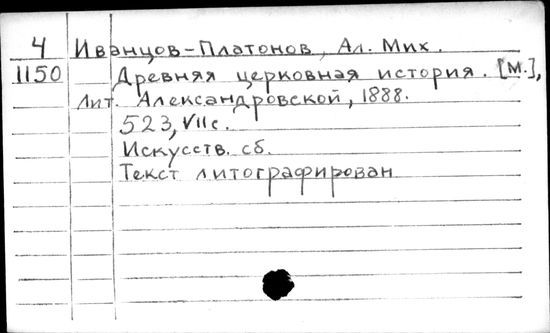 4 Иванцов-Платонов, Ал. Мих.
1150 Древняя церковная история. [М.],
Лит. Александровской, 1888.
523, VII с.
Искусств. сб.
Текст литографирован